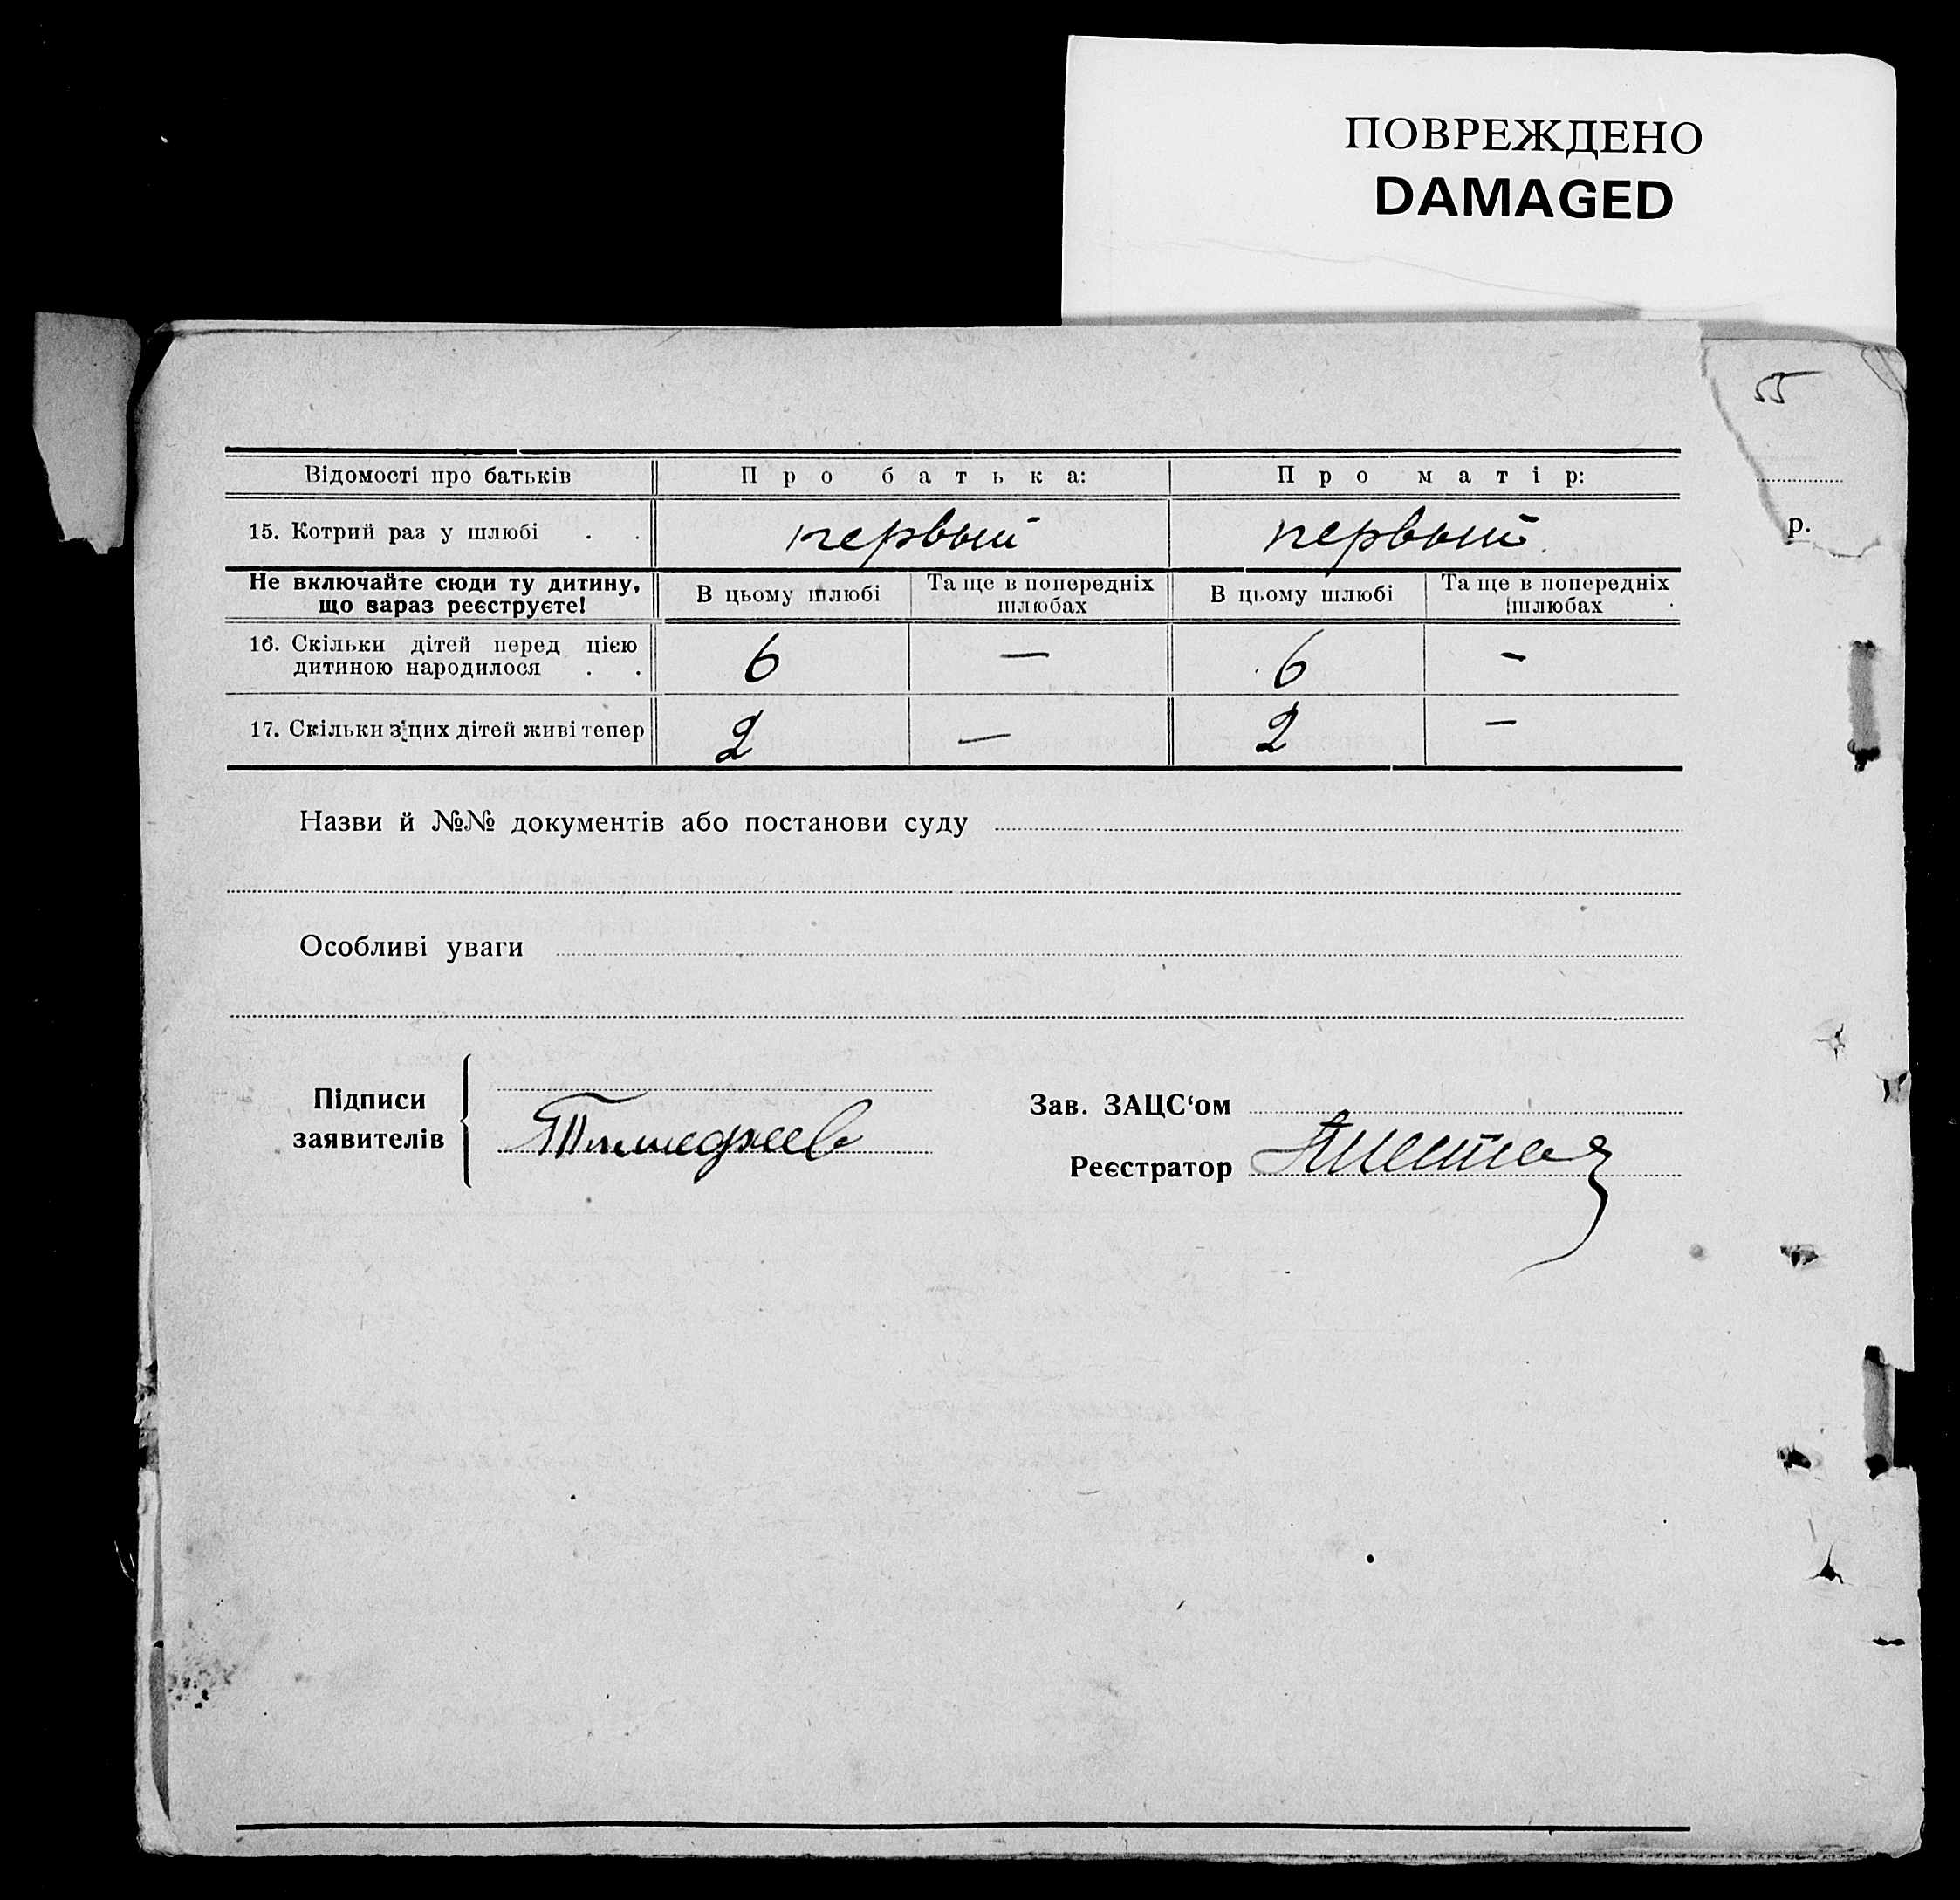 ПОВРЕЖДЕНО
DAMAGED
55
р.
Відомості про батьків Про батька: Про матір:
15. Котрий раз у шлюбі . . первый первый
Не включайте сюди ту дитину, що зараз реєструєте! В цьому шлюбі Та ще в попередніх шлюбах В цьому шлюбі Та ще в попередніх шлюбах
16. Скільки дітей перед цією дитиною народилося . . 6 — 6 —
17. Скільки з цих дітей живі тепер 2 — 2 —
Назви й №№ документів або постанови суду
Особливі уваги
Підписи заявителів Тимофеев
Зав. ЗАЦС‘ом
Реєстратор